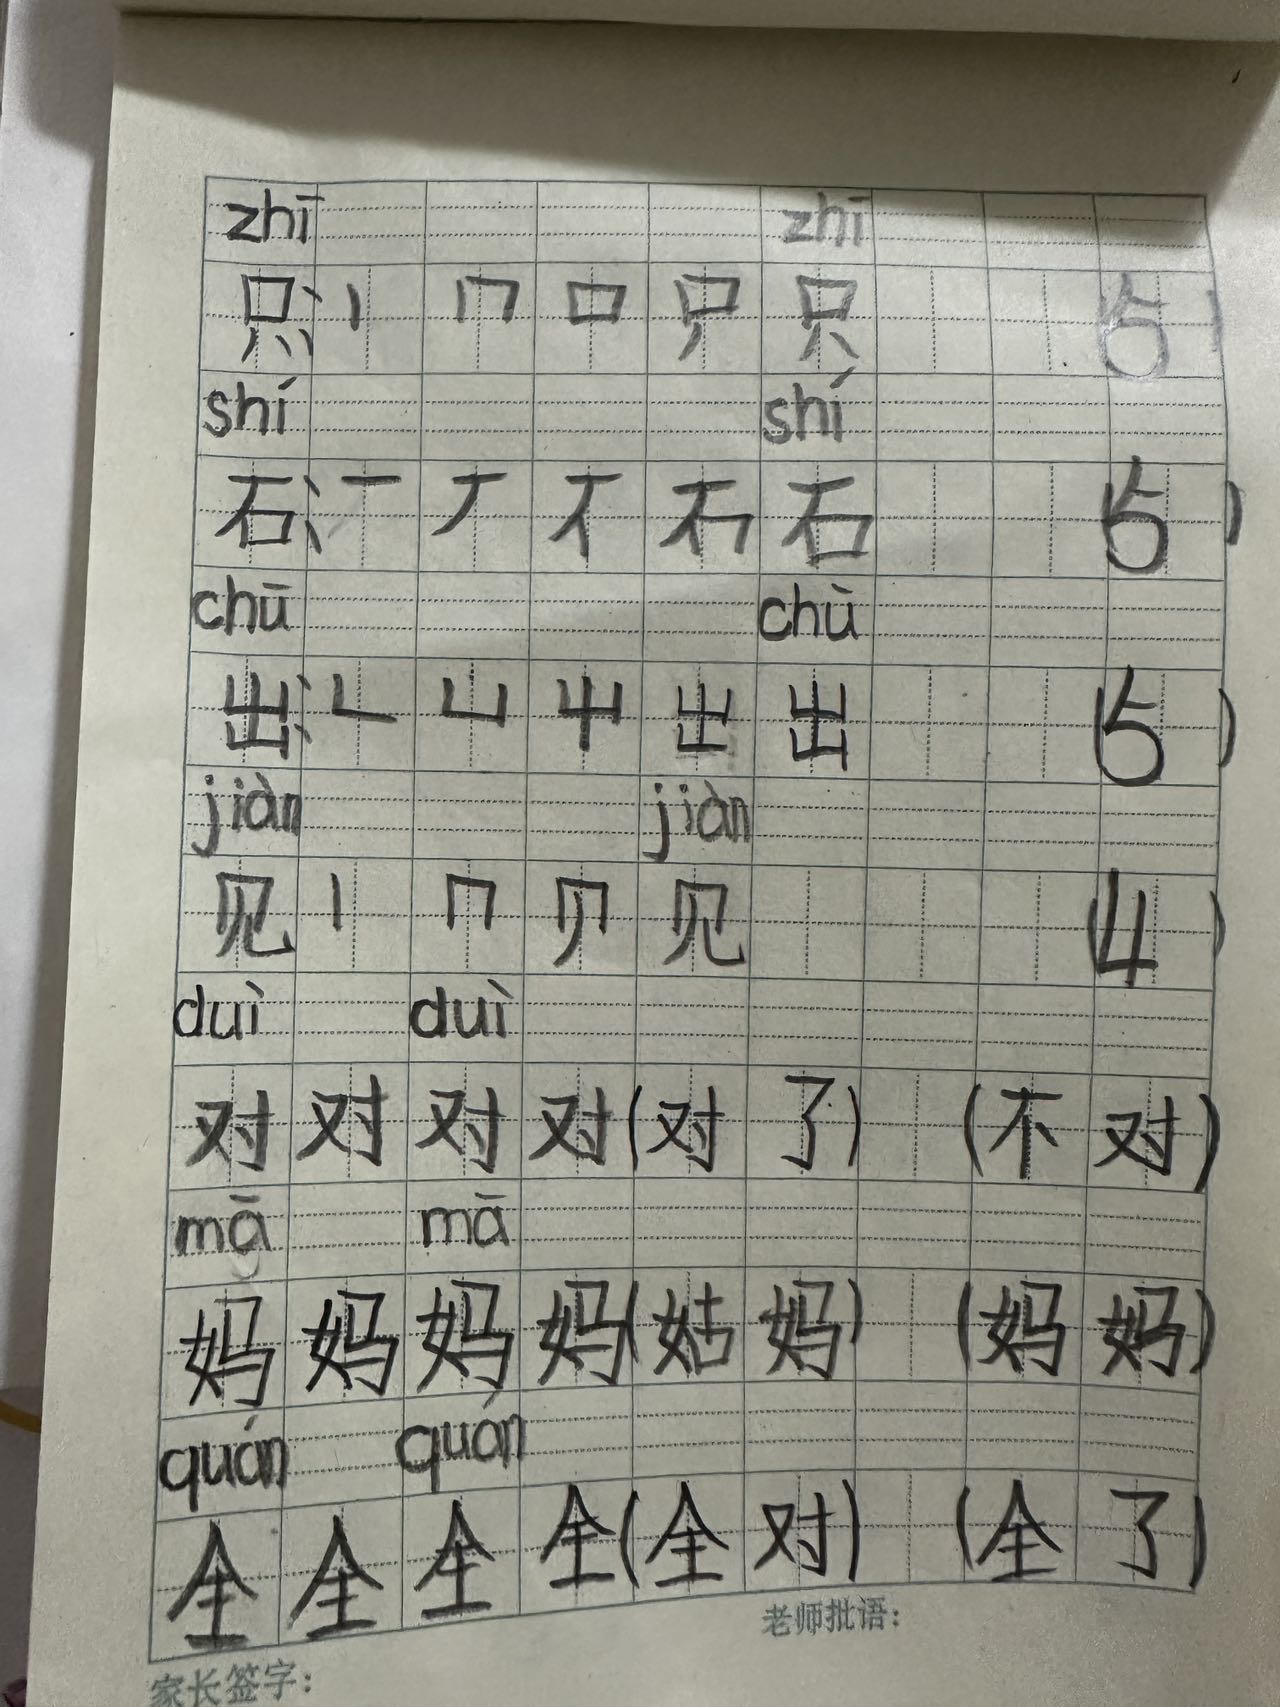 zhī zhī
只: 丨 冂 口 尸 只 (5)
shí shí
石: 一 丆 不 石 (5)
chū chù
出: ㄴ 凵 屮 出 出 (5)
jiàn jiàn
见 丨 冂 贝 见 (4)
duì duì
对 对 对 对 (对 了) (不 对)
mā mā
妈 妈 妈 妈 (姑 妈) (妈 妈)
quán quán
全 全 全 全 (全 对) (全 了)
老师批语:
家长签字: